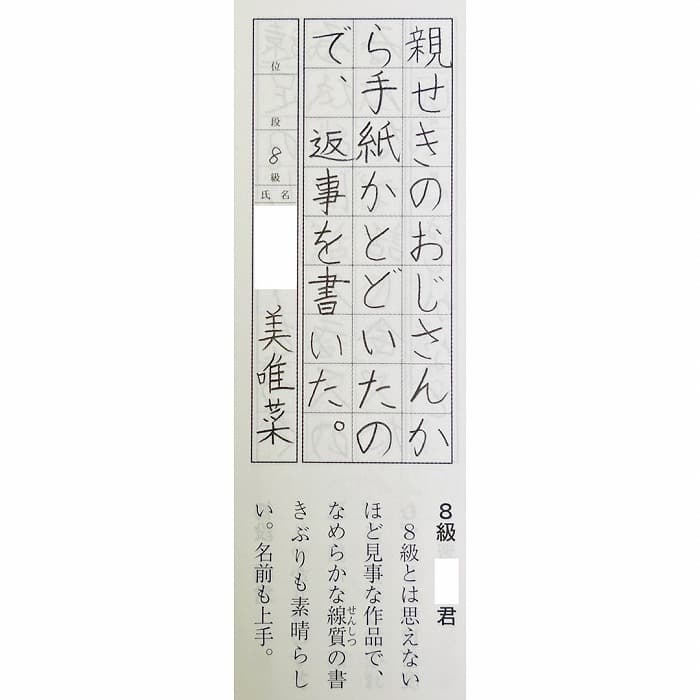 親せきのおじさんか
ら手紙かとどいたの
で、返事を書いた。
位
段
8級
氏名
美唯菜
8級 君
8級とは思えない
ほど見事な作品で、
なめらかな線質の書
せんしつ
きぶりも素晴らし
い。名前も上手。